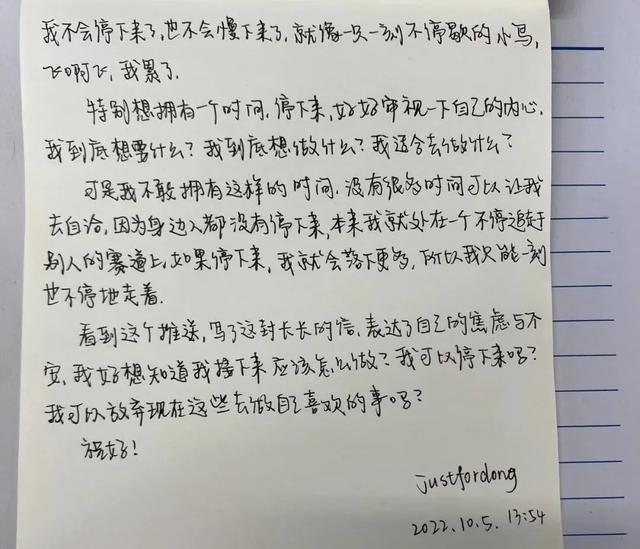 我不会停下来了,也不会慢下来了,就像一只一刻不停歇的小鸟,
飞啊飞,我累了.
特别想拥有一个时间,停下来,好好审视一下自己的内心.
我到底想要什么?我到底想做什么?我适合去做什么?
可是我不敢拥有这样的时间,没有很多时间可以让我
去自洽,因为身边人都没有停下来,本来我就处在一个不停追赶
别人的赛道上,如果停下来,我就会落下更多,所以我只能一刻
也不停地走着.
看到这个推送,写了这封长长的信,表达了自己的焦虑与不
安,我好想知道我接下来应该怎么做?我可以停下来吗?
我可以放弃现在这些去做自己喜欢的事吗?
祝好!
justfordong
2022.10.5. 13:54